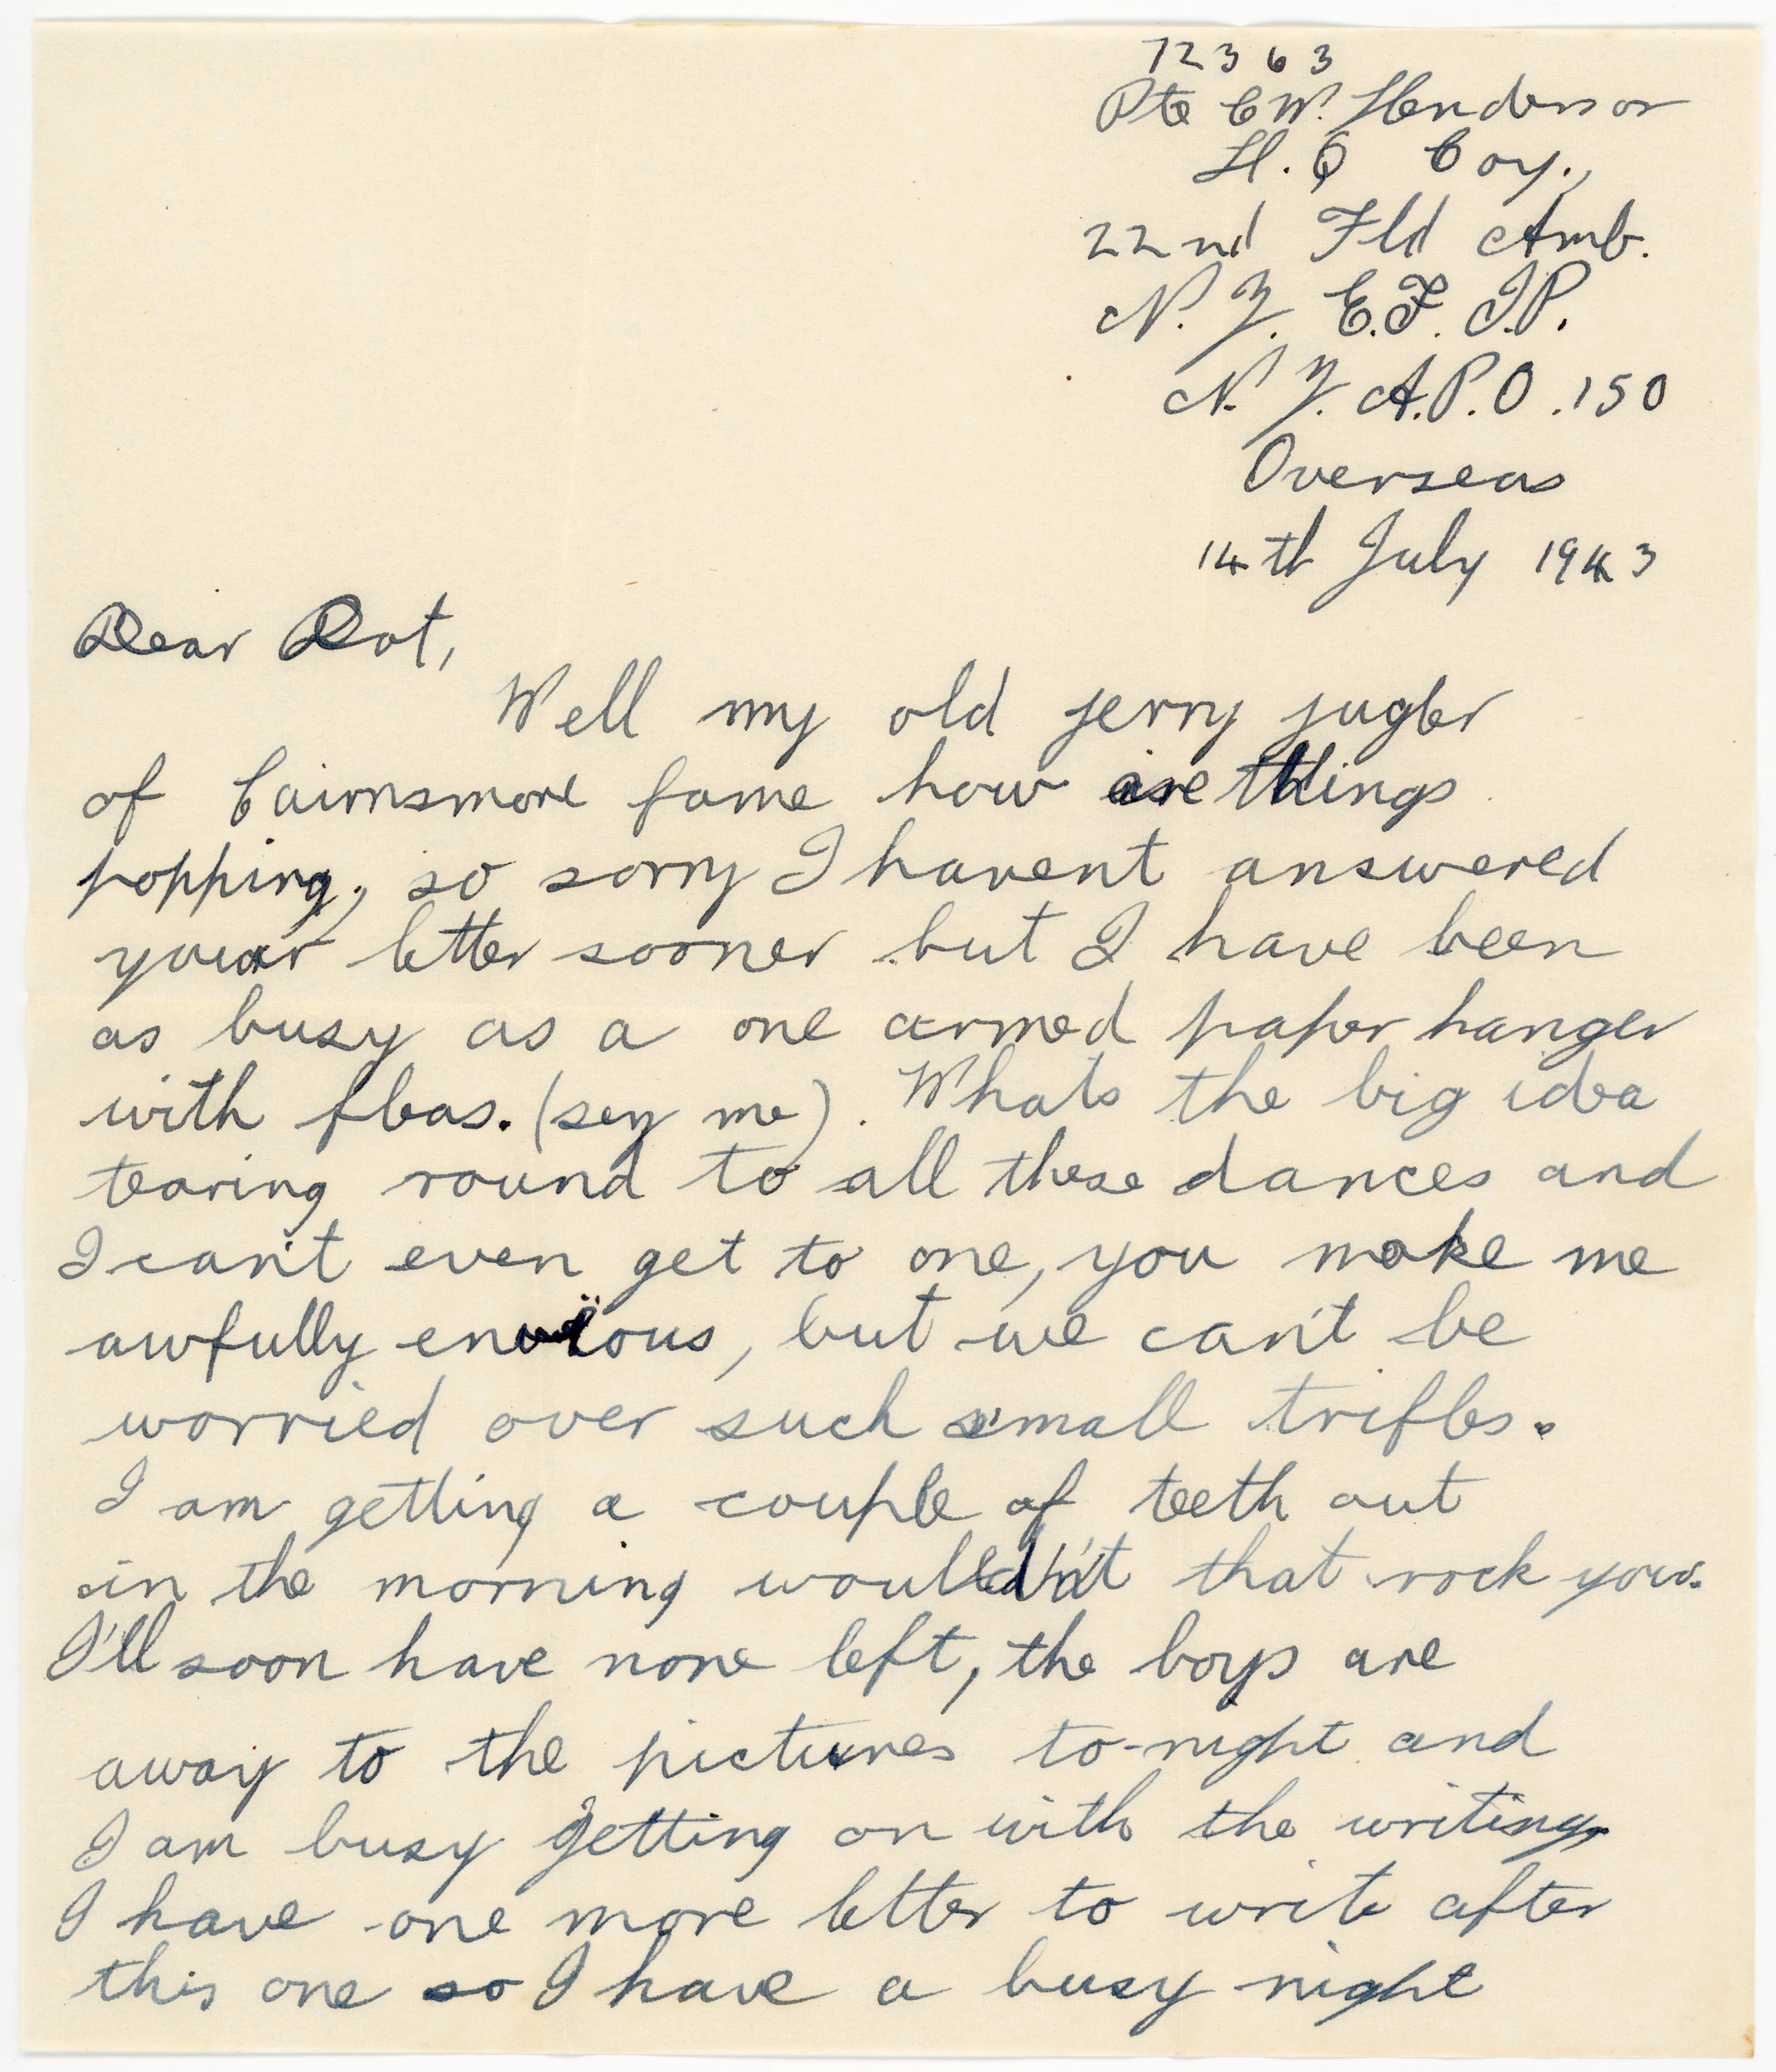 72363
Pte C W. Henderson
H.Q Coy.,
22nd Fld Amb.
N. Z. E.F. I.P.
N. Z. A.P.O. 150
Overseas
14th July 1943
Dear Dot,
Well my old jerry jugler
of Cairnsmore fame how are things
popping, so sorry I havent answered
your letter sooner but I have been
as busy as a one armed paper hanger
with fleas. (sey me). Whats the big idea
tearing round to all these dances and
I can't even get to one, you make me
awfully envious, but we can't be
worried over such small trifles.
I am getting a couple of teeth out
in the morning wouldn't that rock you.
I'll soon have none left, the boys are
away to the pictures to-night and
I am busy getting on with the writing,
I have one more letter to write after
this one so I have a busy night